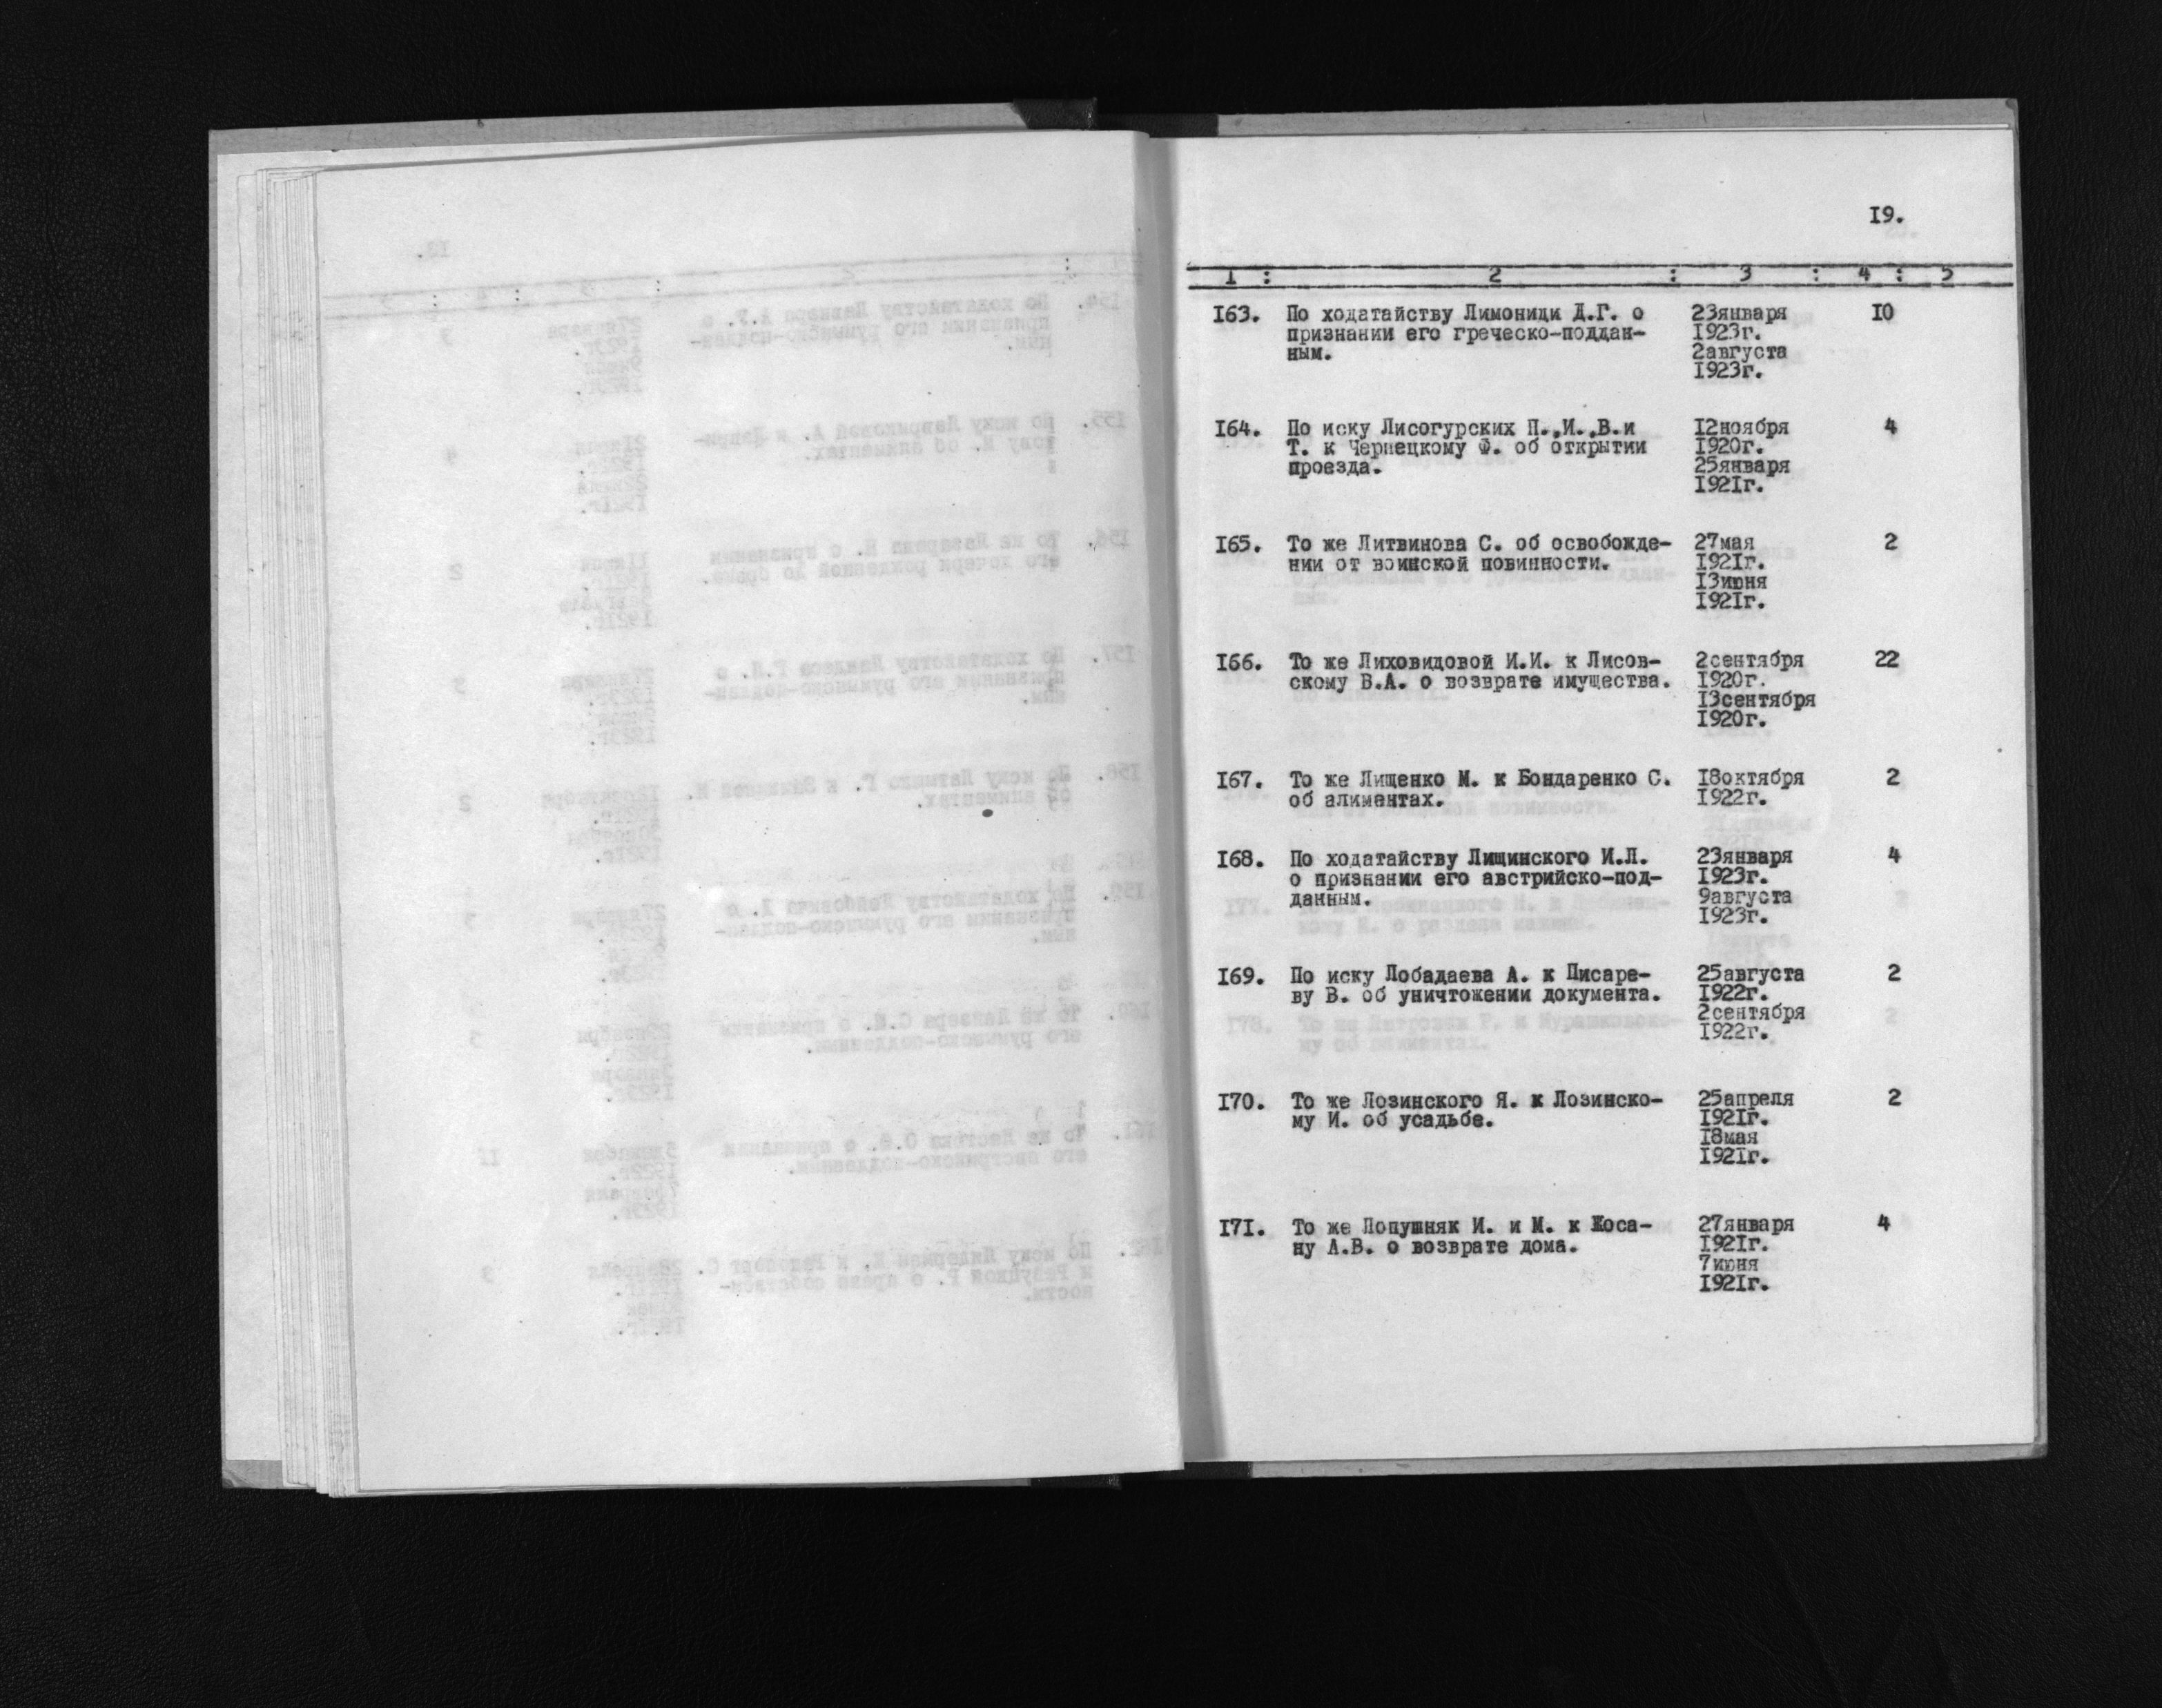 I9.
1 : 2 : 3 : 4 : 5
I63. По ходатайству Лимониди Д.Г. о 23января I0
признании его греческо-поддан- I923г.
ным. 2августа
I923г.
I64. По иску Лисогурских П.,И.,В.и I2ноября 4
Т. к Чернецкому Ф. об открытии I920г.
проезда. 25января
I92Iг.
I65. То же Литвинова С. об освобожде- 27мая 2
нии от воинской повинности. I92Iг.
I3июня
I92Iг.
I66. То же Лиховидовой И.И. к Лисов- 2сентября 22
скому В.А. о возврате имущества. I920г.
I3сентября
I920г.
I67. То же Лищенко М. к Бондаренко С. I8октября 2
об алиментах. I922г.
I68. По ходатайству Лищинского И.Л. 23января 4
о признании его австрийско-под- I923г.
данным. 9августа
I923г.
I69. По иску Лобадаева А. к Писаре- 25августа 2
ву В. об уничтожении документа. I922г.
2сентября
I922г.
I70. То же Лозинского Я. к Лозинско- 25апреля 2
му И. об усадьбе. I92Iг.
I8мая
I92Iг.
I7I. То же Лопушняк И. и М. к Жоса- 27января 4
ну А.В. о возврате дома. I92Iг.
7июня
I92Iг.